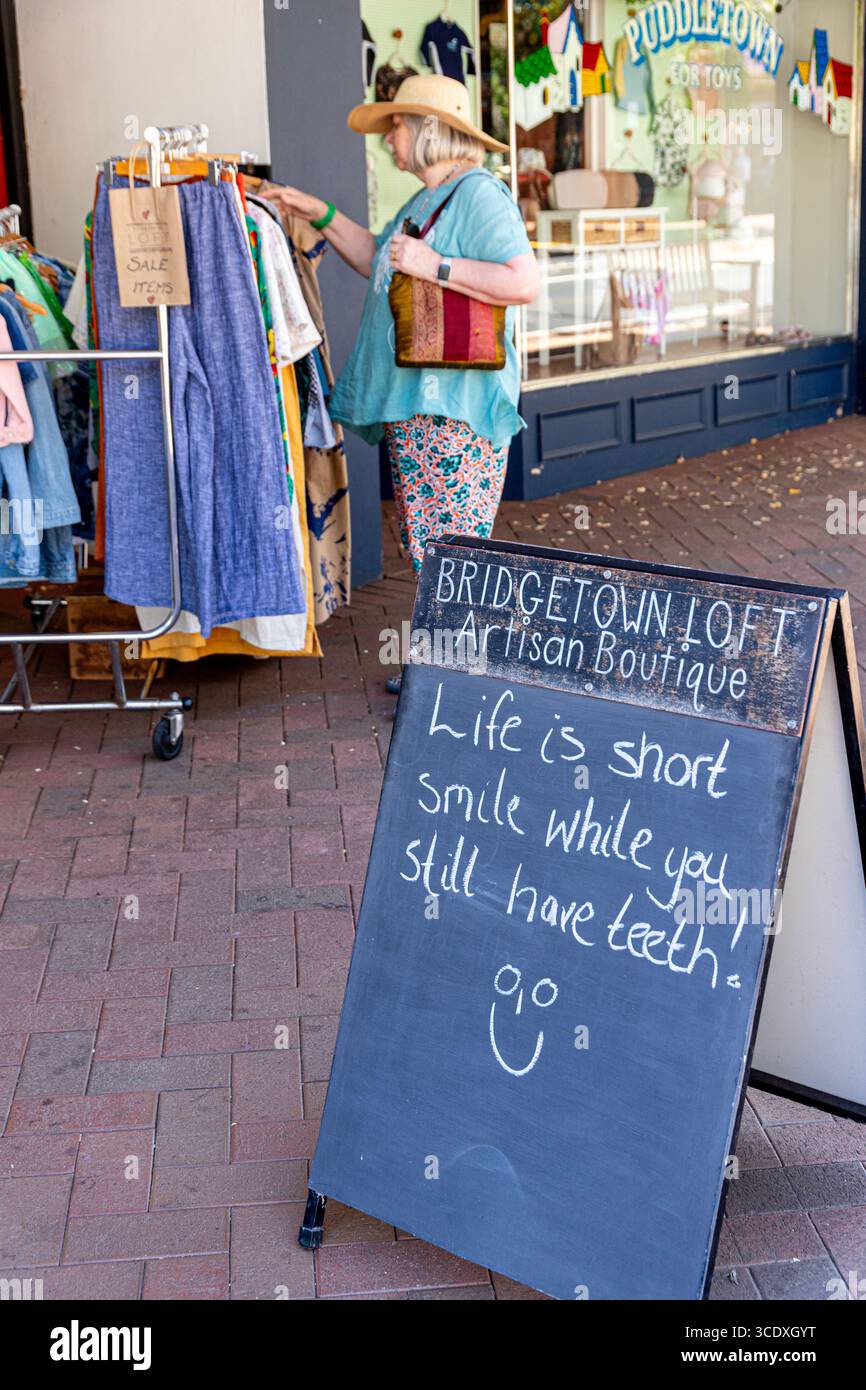 PUDDLETOWN
FOR TOYS
LOFT
SALE
ITEMS
BRIDGETOWN LOFT
Artisan Boutique
Life is short
smile while you
still have teeth!
alamy
Image ID: 3CDXGYT
www.alamy.com